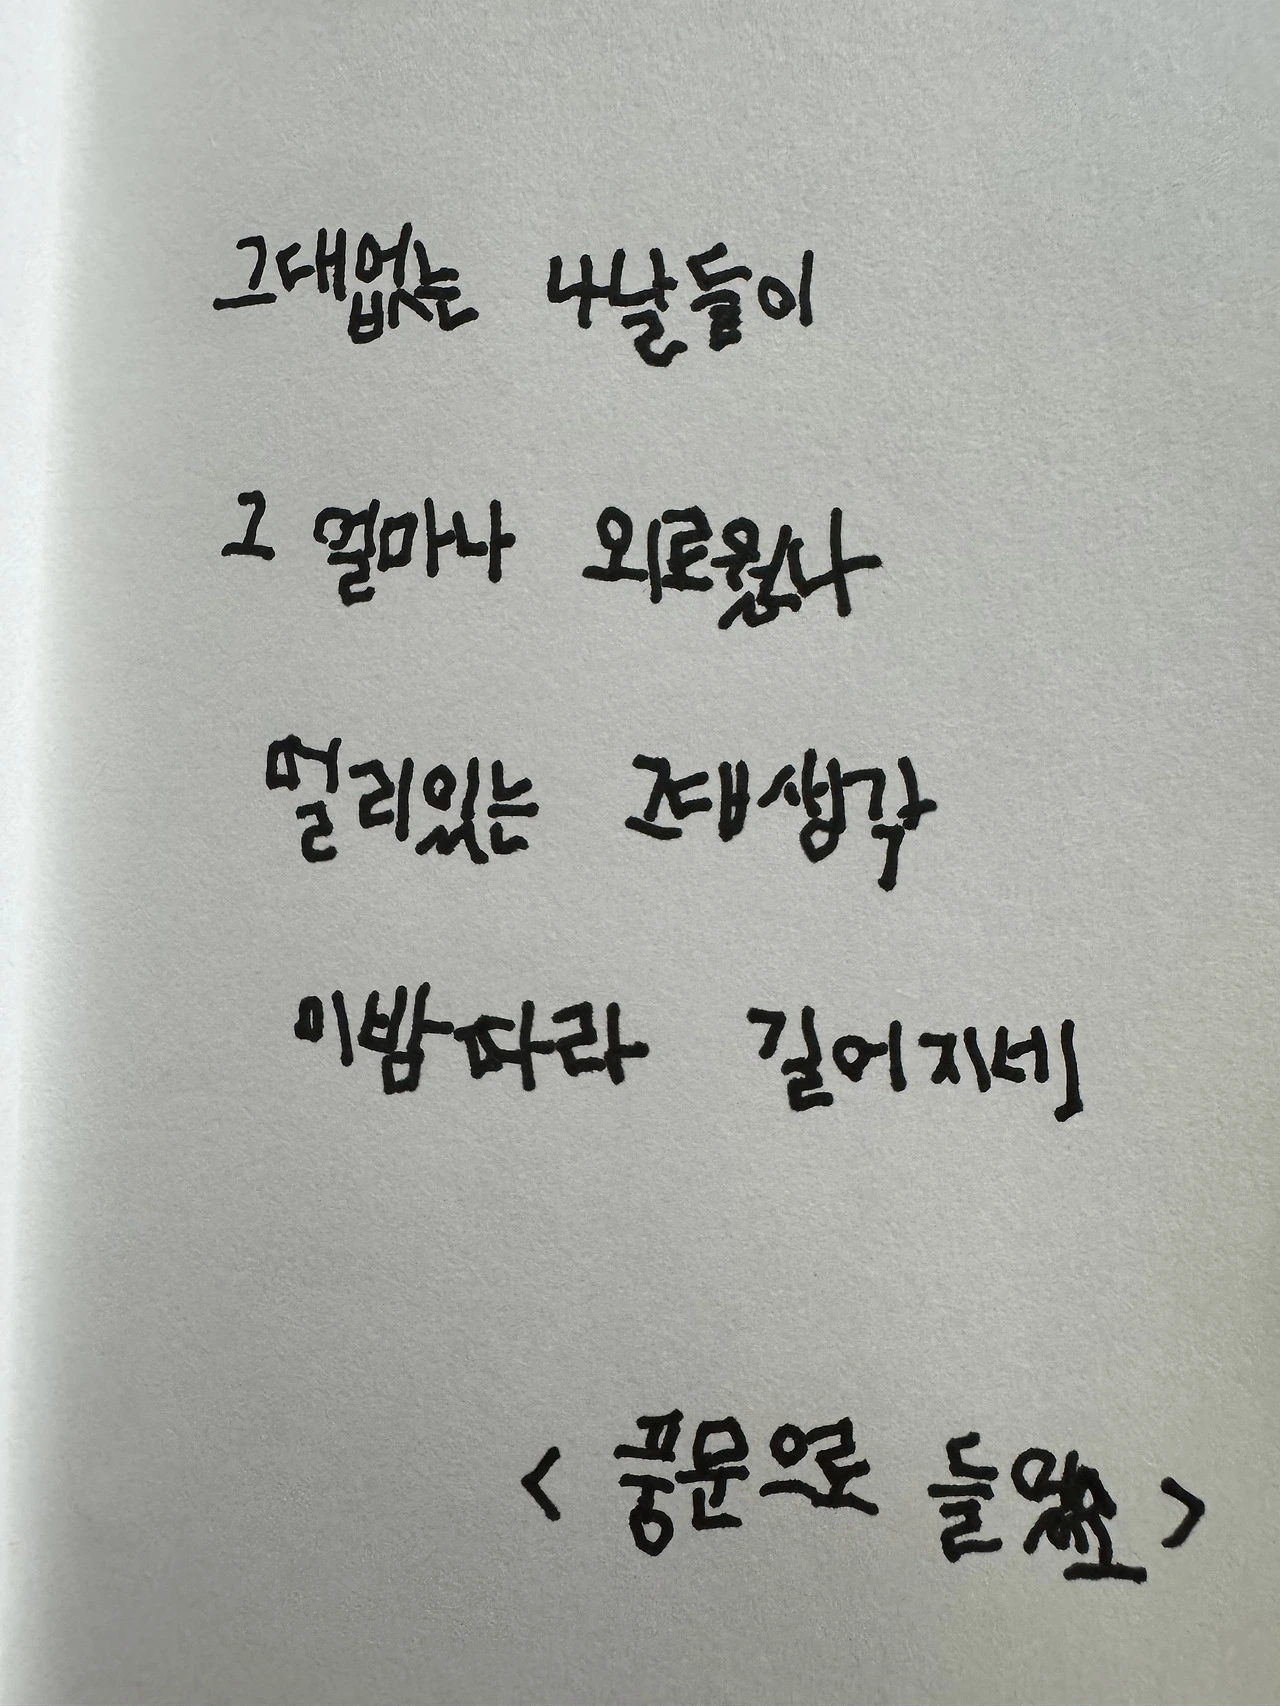 그대없는 나날들이
그 얼마나 외로웠나
멀리있는 그대생각
이밤따라 길어지네
< 풍문으로 들었소 >